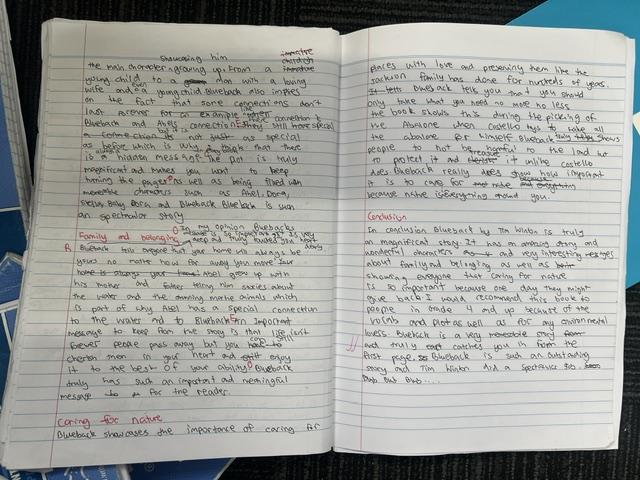 showcasing him
the main character growing up. From a
young child to a man with a loving
wife and even a young child Blueback also implies
on the fact that some connections don't
last forever for an example like
Blueback and Abels connection. They still have special
connection but it is just as special
as before which is why I think that there
is always a hidden message. The plot is truly
magnificent and makes you want to keep
turning the pages as well as being filled with
memorable characters such as Abel, Dora,
Stella, Baby Dora and Blueback. Blueback is such
an spectacular story
Family and belonging
In my opinion Bluebacks
is so important as it is very
deep and truly touches you heart
Blueback tells everyone that your home will always be
yours no matter how far away you move
Abel grew up with
his mother and father telling him stories about
the water and the amazing marine animals which
is part of why Abel has a special connection
to the water and to Blueback. An important
message to keep from the story is that life isn't
forever people pass away but you can still
cherish them in your heart and enjoy
it to the best of your ability. Blueback
truly has such an important and meaningful
message to for the reader.
Caring for nature
Blueback showcases the importance of caring for
places with love and preserving them like the
Jackson family has done for hundreds of years.
Blueback tells you that you should
only take what you need no more no less
the book shows this during the picking of
the Abalone when Costello tries to take all
the abalone for himself. Blueback shows
people to not be harmful in the land but
to protect it and it unlike Costello
does. Blueback really does show how important
it is to care for
because nature is everything around you.
Conclusion
In conclusion Blueback by Tim Winton is truly
an magnificent story. It has an amazing story and
wonderful characters and very interesting
about family and belonging as well as
showing everyone that caring for nature
is so important because one day they might
give back. I would recommend this book to
people in grade 4 and up because of the
and plot as well as for any environmental
lovers. Blueback is a very story
and truly catches you in from the
first page. Blueback is such an outstanding
story and Tim Winton did a spectacular job
Dub Dub Dub....